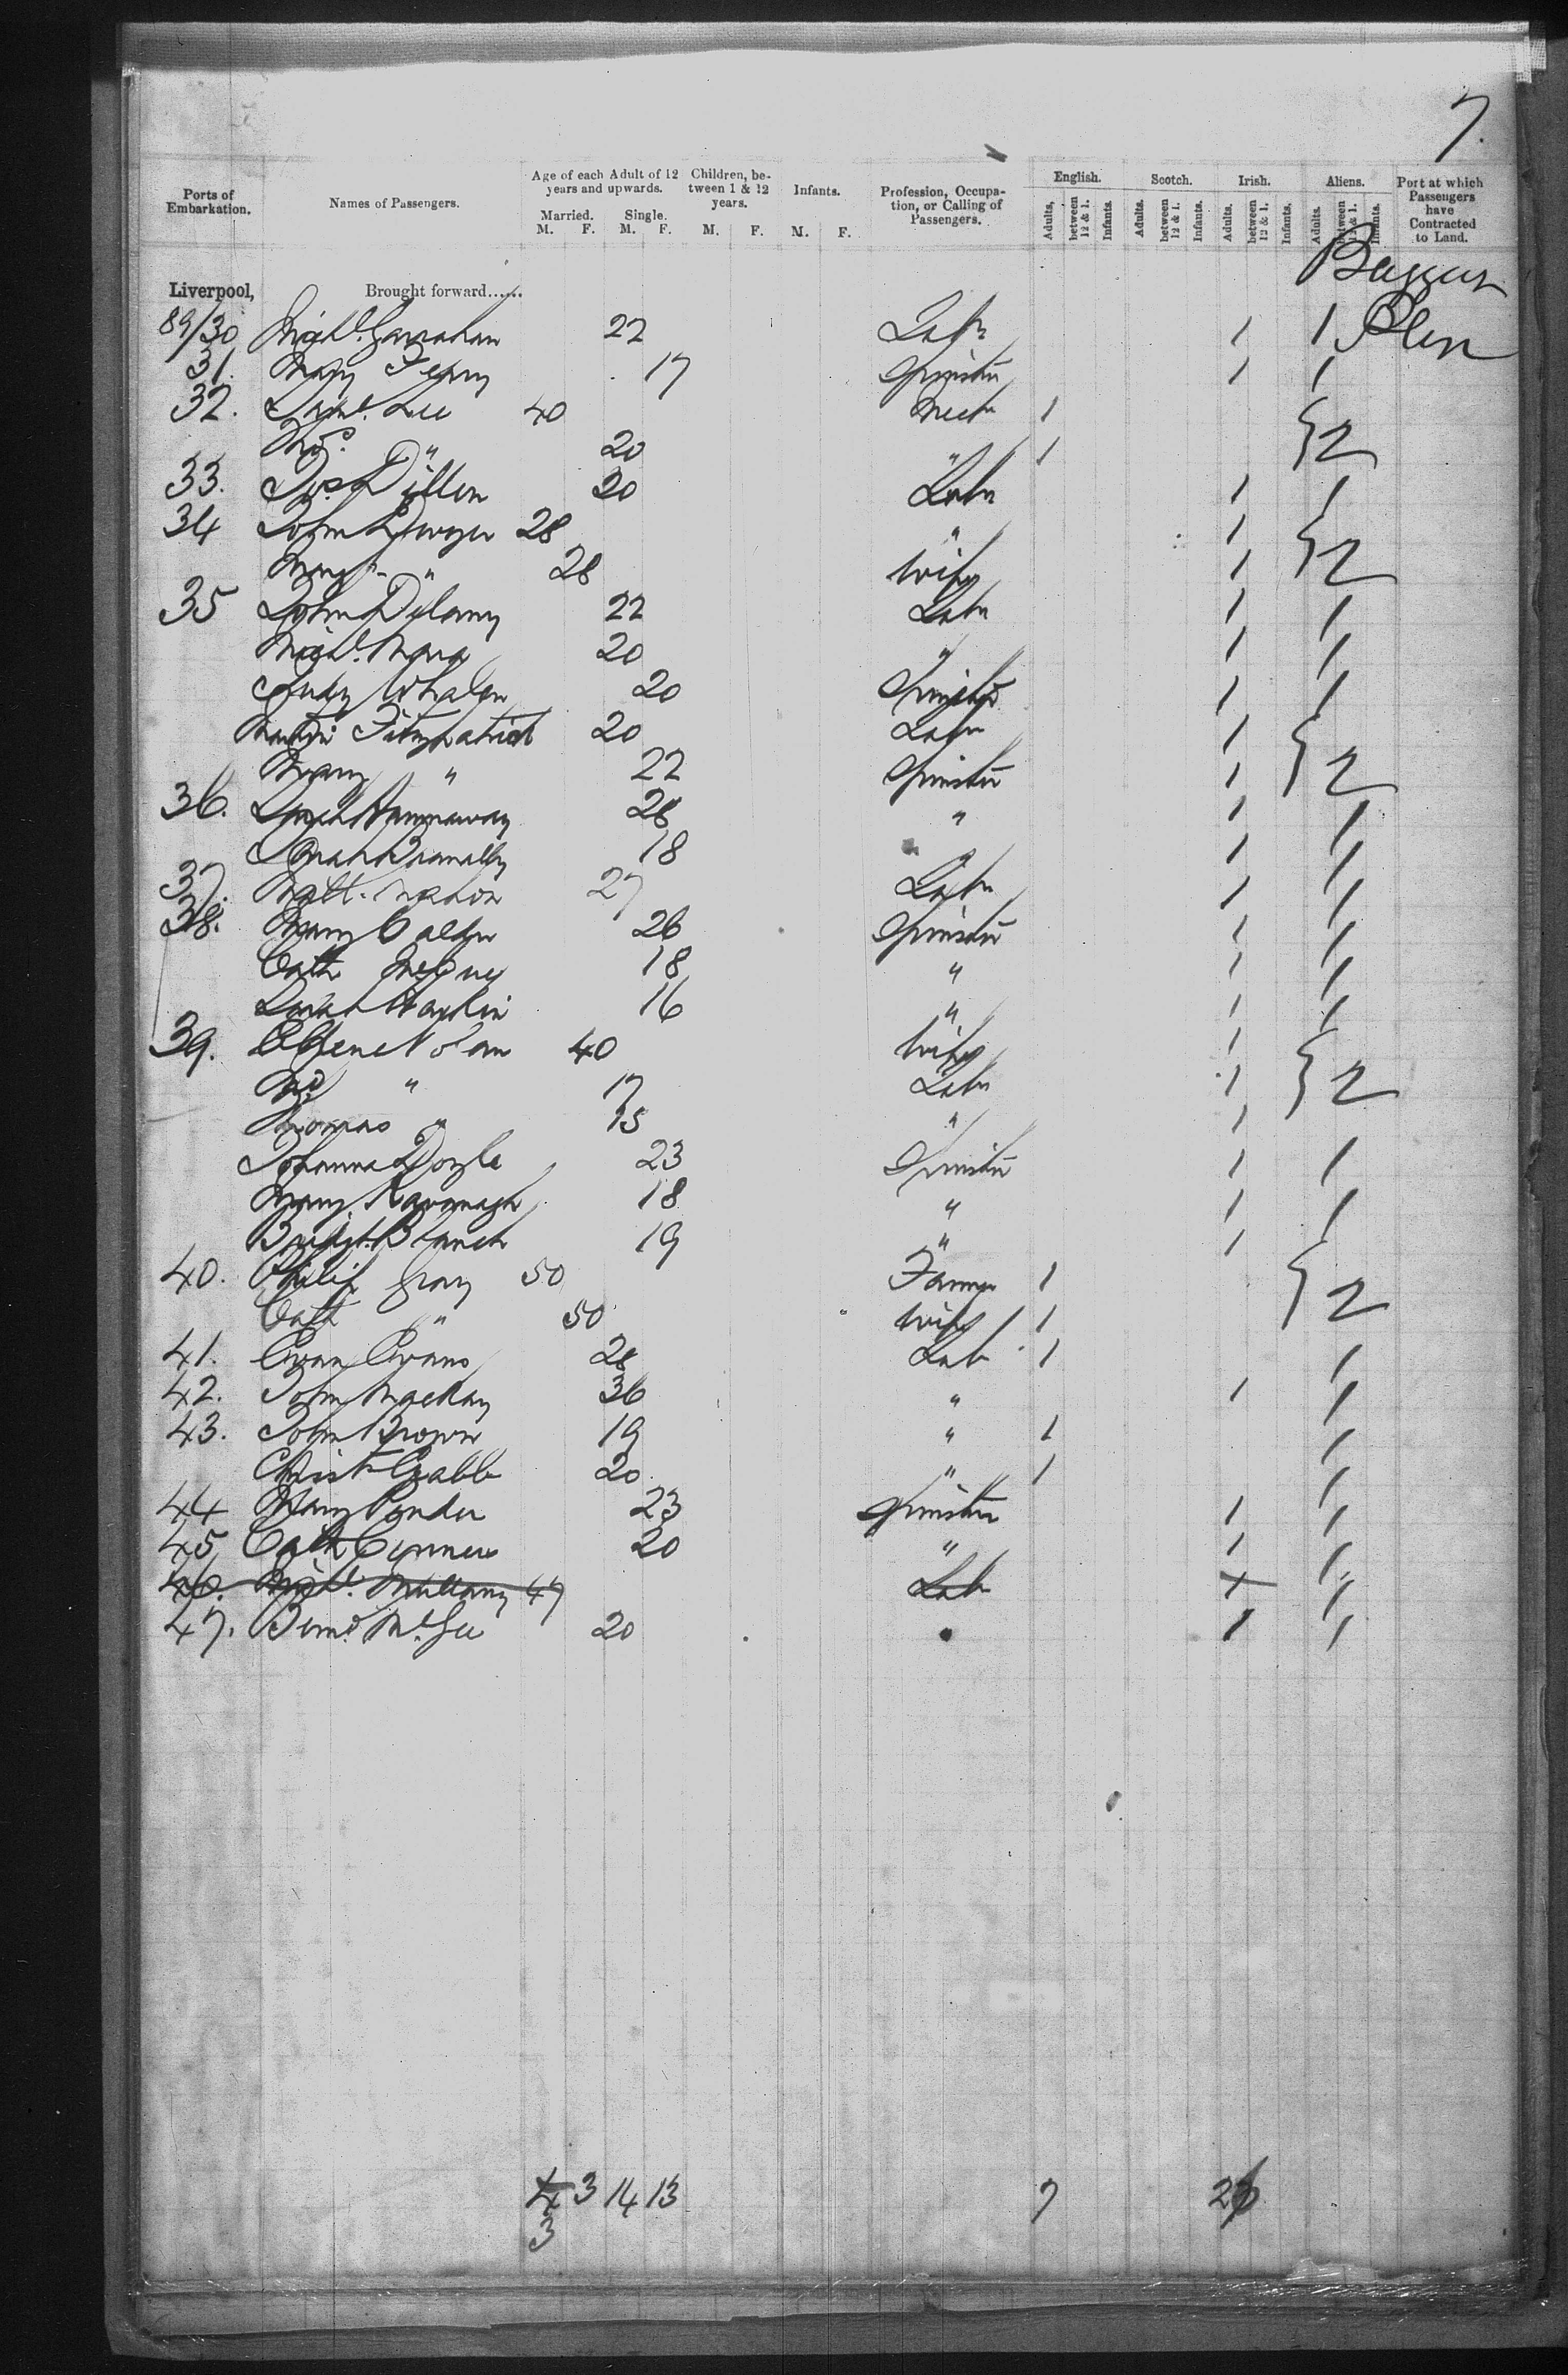 7.
Ports of Embarkation. Names of Passengers. Age of each Adult of 12 years and upwards. Married. M. F. Single. M. F. Children, between 1 & 12 years. M. F. Infants. M. F. Profession, Occupation, or Calling of Passengers. English. Adults, between 12 & 1. Infants. Scotch. Adults. between 12 & 1. Infants. Irish. Adults. between 12 & 1. Infants. Aliens. Adults. between 12 & 1. Infants. Port at which Passengers have Contracted to Land.
Liverpool, Brought forward......
89/30 Michl. 22 Labr 1 1
31. Mary 17 Spinster 1 1
32. Saml. Lee 40 Mech 1
" 20 " 1 }2
33. Jos Dillon 20 Labr 1 1
34 John Dwyer 28 " 1
Margt " 28 Wife 1 }2
35 John Delany 22 Labr 1 1
Michl. Mara 20 " 1 1
Judy Whalen 20 Spinster 1 1
Martin Fitzpatrick 20 Labr 1
Mary " 22 Spinster 1 }2
36. Sarah Hannaway 28 " 1 1
Sarah 18 " 1 1
37. Matt. Mahon 27 Labr 1 1
38. Mary 26 Spinster 1 1
Cath 18 " 1 1
Sarah 16 " 1 1
39. Nolan 40 Wife 1
" 17 Labr 1 }2
Thomas " 15 " 1
Johanna Doyle 23 Spinster 1 1
Mary Kavanagh 18 " 1 1
Bridgt. 19 " 1
40. Philip Gray 50 Farmer 1
Cath " 50 Wife 1 }2
41. Evan Evans 28 Lab 1 1
42. John Mackay 36 " 1 1
43. John Brown 19 " 1 1
Christr Crabb 20 " 1 1
44 Mary Ponder 23 Spinster 1 1
45 Cath 20 " 1 1
46. Michl. Mullany 47 Lab 1 1
47. Bernd. McGee 20 " 1 1
4 3 14 13 7
3